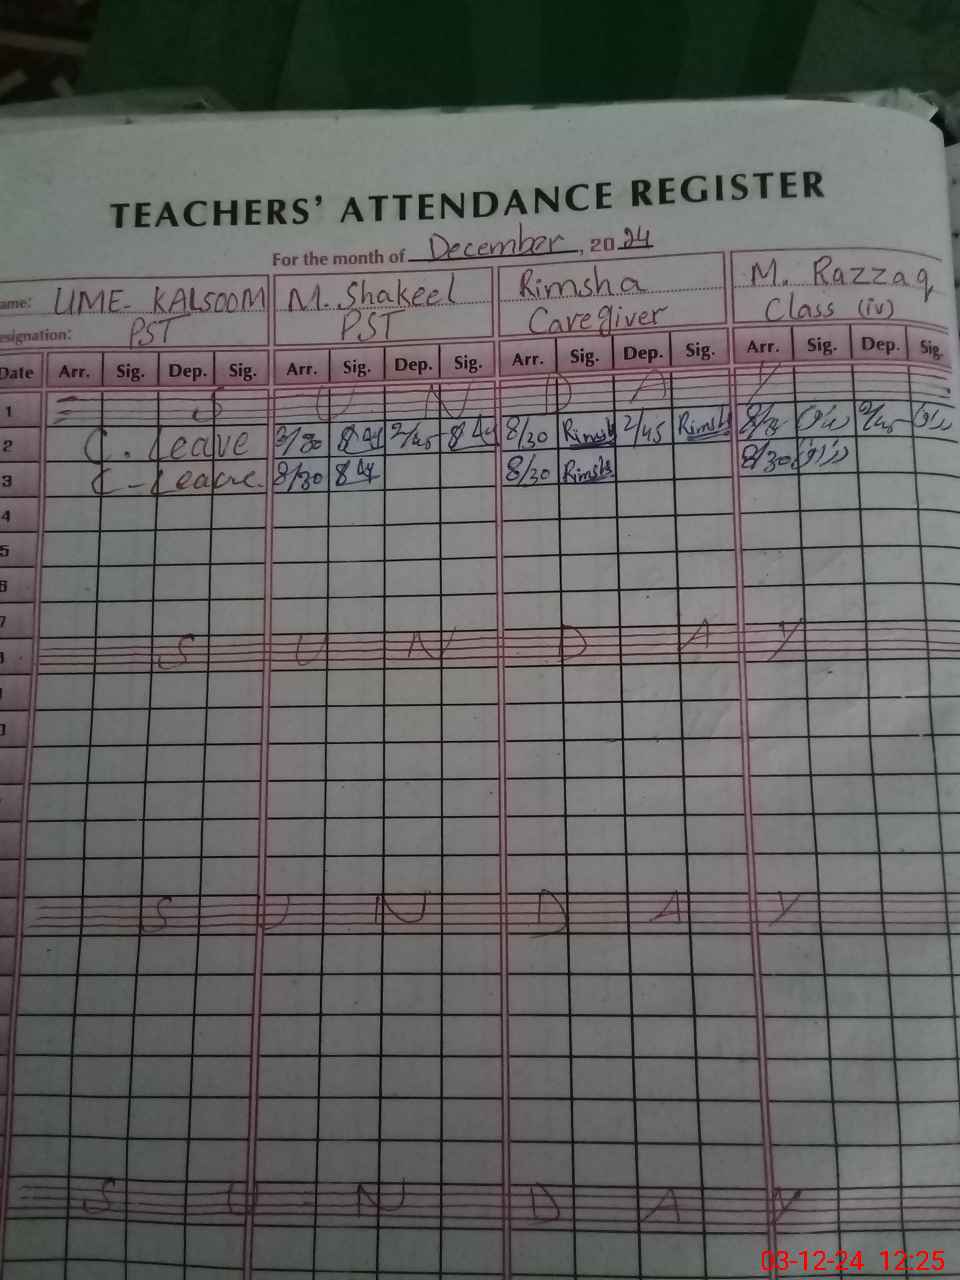 TEACHERS' ATTENDANCE REGISTER
For the month of December, 2024
ame: UME-KALSOOM M. Shakeel Rimsha M. Razzaq
esignation: PST PST Caregiver Class (iv)
Date Arr. Sig. Dep. Sig. Arr. Sig. Dep. Sig. Arr. Sig. Dep. Sig. Arr. Sig. Dep. Sig.
1 S U N D A Y
2 C. Leave 8/30 2/45 8/30 Rimsha 2/45 Rimsha 8/30 2/45
3 C-Leave. 8/30 8/30 Rimsha 8/30
4
5
6
7
S U N D A Y
S U N D A Y
S U N D A Y
03-12-24 12:25